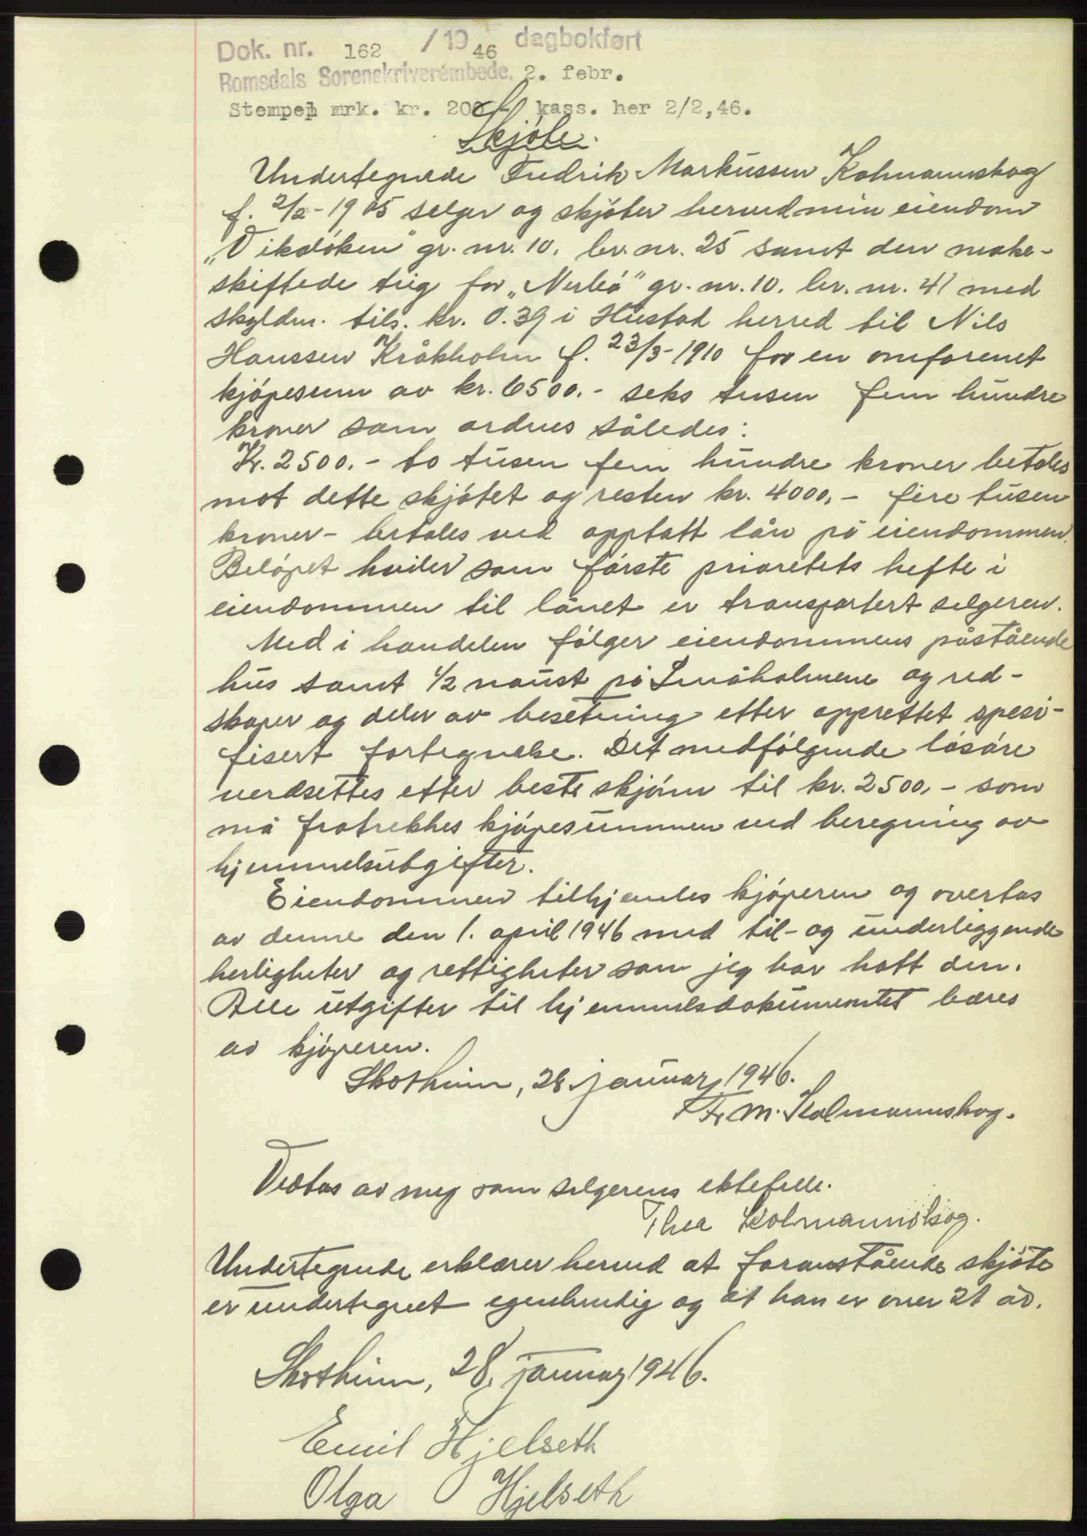 Dok. nr. 162 /1946 dagbokført
Romsdals Sorenskriverembede, 2. febr.
Stempel mrk. kr. 200 kass. her 2/2,46.
Skjøte.
Undertegnede Fredrik Markussen Kolmannskog
f. 2/2-1905 selger og skjøter herved min eiendom
"Vikaløken" gr. nr. 10, br. nr. 25 samt den make-
skiftede teig for "Nerbø" gr. nr. 10. br. nr. 41 med
skyldm. tils. kr. 0.39 i Hustad herred til Nils
Hanssen Kråkholm f. 23/3-1910 for en omforenet
kjøpesum av kr. 6500.- seks tusen fem hundre
kroner som ordnes således:
Kr. 2500.- to tusen fem hundre kroner betales
mot dette skjøtet og resten kr. 4000,- fire tusen
kroner- betales ved opptatt lån på eiendommen.
Beløpet hviler som første prioritets hefte i
eiendommen til lånet er transportert selgeren.
Med i handelen følger eiendommens påstående
hus samt 1/2 naust på Småholmene og red-
skaper og deler av besetning etter opprettet spesi-
fisert fortegnelse. Det medfølgende løsøre
verdsettes etter beste skjønn til kr. 2500,- som
må fratrekkes kjøpesummen ved beregning av
hjemmelsutgifter.
Eiendommen tilhjemles kjøperen og overtas
av denne den 1. april 1946 med til- og underliggende
herligheter og rettigheter som jeg har hatt den.
Alle utgifter til hjemmelsdokumentet bæres
av kjøperen.
Skotheim, 28 januar 1946.
Fr. M. Kolmannskog.
Vedtas av meg som selgerens ektefelle.
Thea Kolmannskog.
Undertegnede erklærer herved at foranstående skjøte
er undertegnet egenhendig og at han er over 21 år.
Skotheim, 28. januar 1946.
Emil Hjelseth
Olga Hjelseth